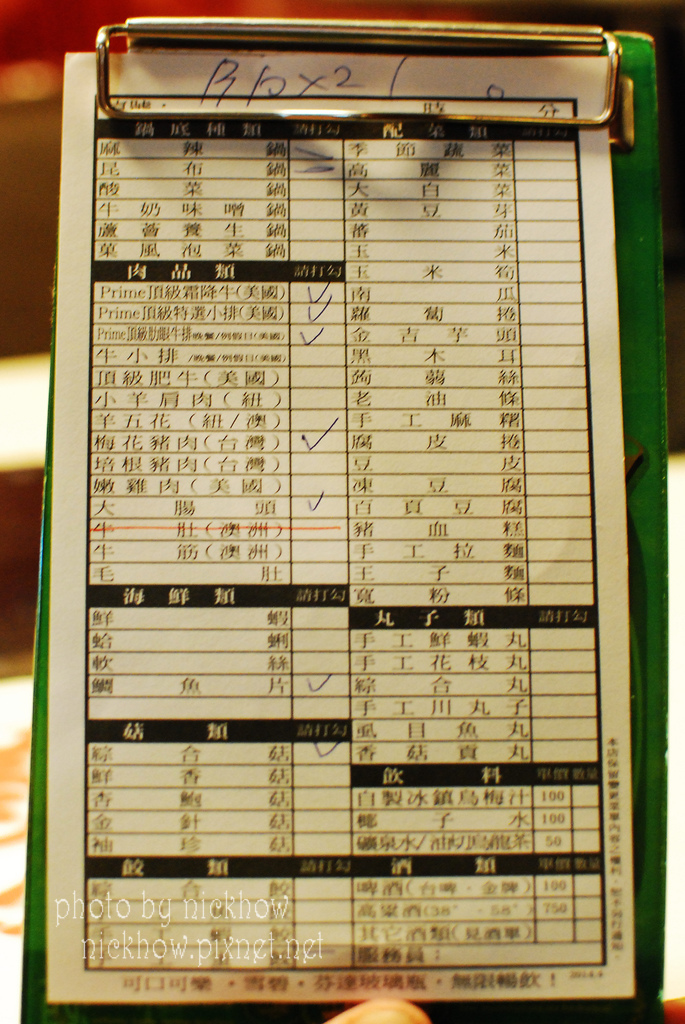 時 分
鍋底種類 請打勾
麻辣鍋
昆布鍋
酸菜鍋
牛奶味噌鍋
蘆薈養生鍋
菓風泡菜鍋
肉品類 請打勾
Prime頂級霜降牛(美國)
Prime頂級特選小排(美國)
Prime頂級肋眼牛排/晚餐/例假日(美國)
牛小排/晚餐/例假日(美國)
頂級肥牛(美國)
小羊肩肉(紐)
羊五花(紐/澳)
梅花豬肉(台灣)
培根豬肉(台灣)
嫩雞肉(美國)
大腸頭
牛肚(澳洲)
牛筋(澳洲)
毛肚
海鮮類 請打勾
鮮蝦
蛤蜊
軟絲
鯛魚片
菇類 請打勾
綜合菇
鮮香菇
杏鮑菇
金針菇
袖珍菇
餃類 請打勾
綜合餃
配菜類 請打勾
季節蔬菜
高麗菜
大白菜
黃豆芽
蕃茄
玉米
玉米筍
南瓜
蘿蔔捲
金吉芋頭
黑木耳
蒟蒻絲
老油條
手工麻糬
腐皮捲
豆皮
凍豆腐
百頁豆腐
豬血糕
手工拉麵
王子麵
寬粉條
丸子類 請打勾
手工鮮蝦丸
手工花枝丸
綜合丸
手工川丸子
虱目魚丸
香菇貢丸
飲料 單價 數量
自製冰鎮烏梅汁 100
椰子水 100
礦泉水/油切烏龍茶 50
酒類 單價 數量
啤酒(台啤·金牌) 100
高粱酒(38°·58°) 750
其它酒類(見酒單)
服務員:
可口可樂·雪碧·芬達玻璃瓶·無限暢飲!
photo by nickhow
nickhow.pixnet.net